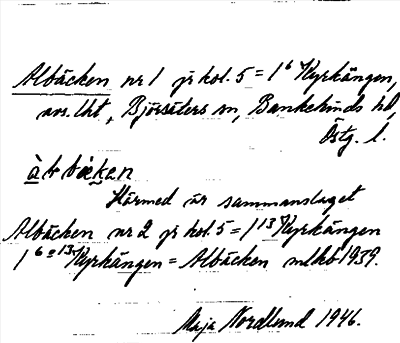 Albäcken nr 1 jr kol. 5 = 1⁶ Kyrkängen,
avs. lht, Björsäters sn, Bankekinds hd,
Östg. l.
àbbäken
Härmed är sammanslaget
Albäcken nr 2 jr kol. 5 = 1¹³ Kyrkängen
1⁶⁺¹³ Kyrkängen = Albäcken mlkb 1939.
Maja Nordlund 1946.